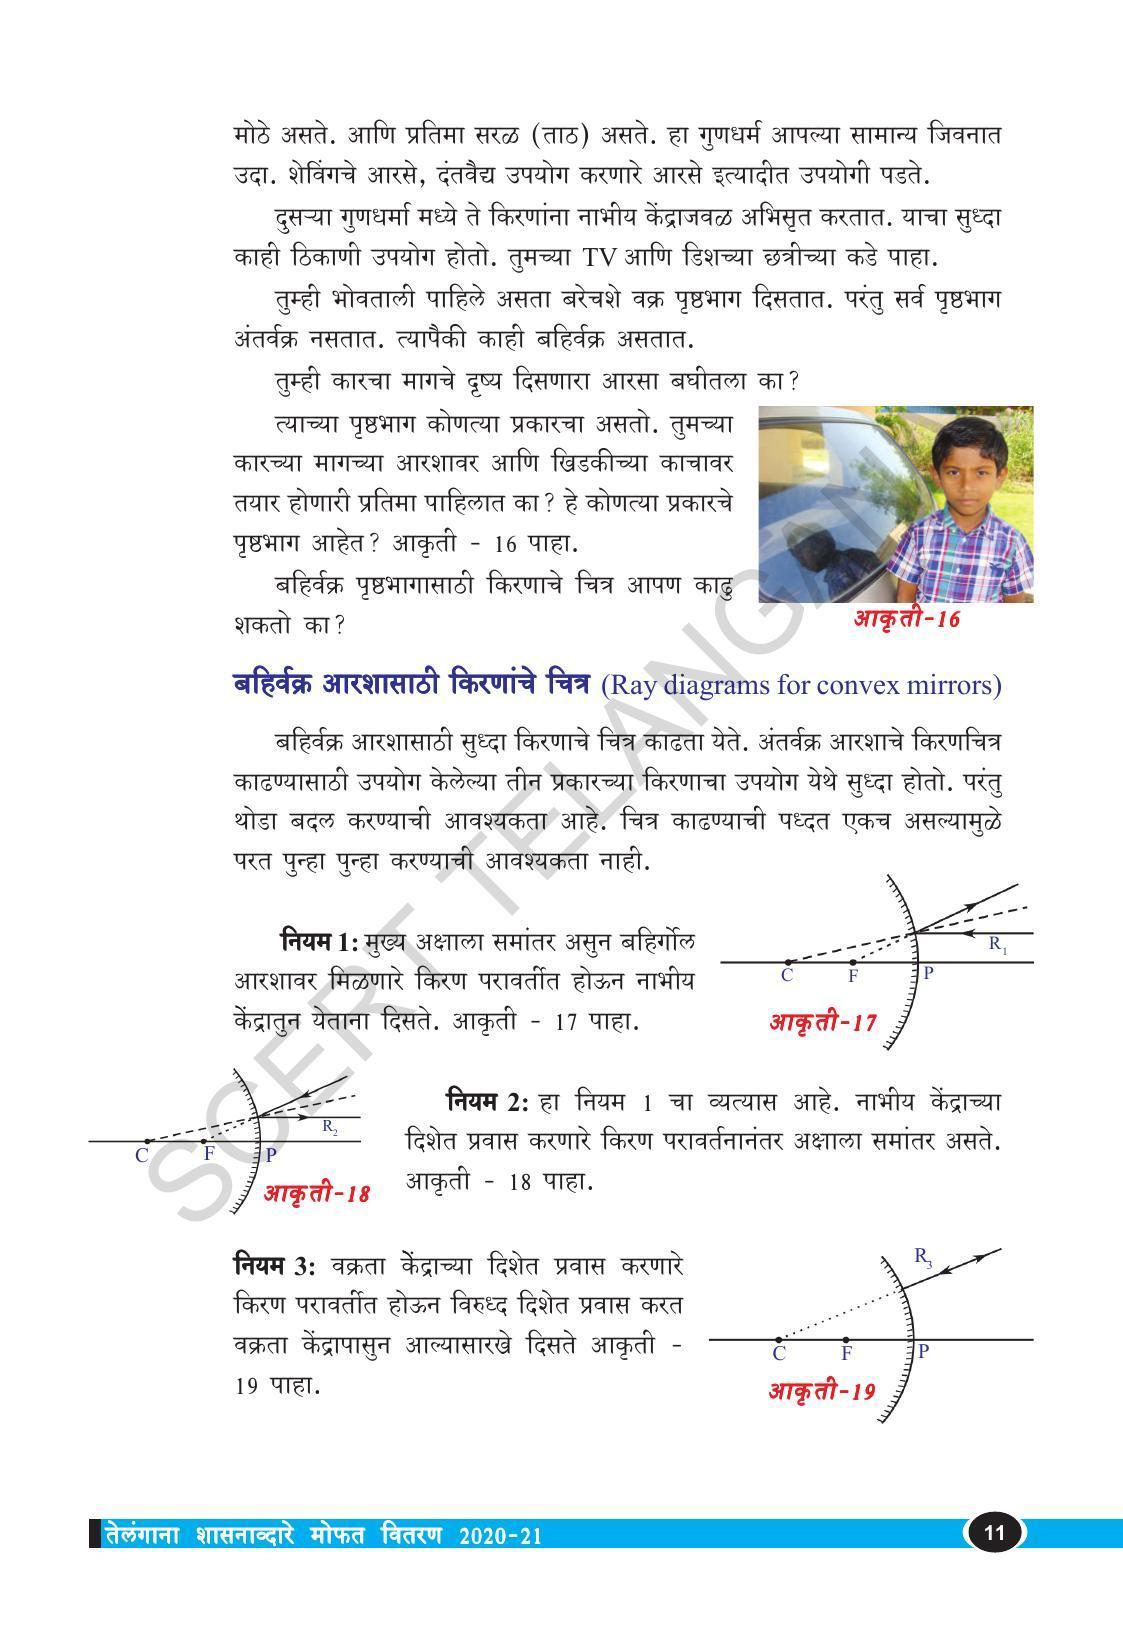 मोठे असते. आणि प्रतिमा सरळ (ताठ) असते. हा गुणधर्म आपल्या सामान्य जिवनात
उदा. शेविंगचे आरसे, दंतवैद्य उपयोग करणारे आरसे इत्यादीत उपयोगी पडते.
दुसऱ्या गुणधर्मा मध्ये ते किरणांना नाभीय केंद्राजवळ अभिसृत करतात. याचा सुध्दा
काही ठिकाणी उपयोग होतो. तुमच्या TV आणि डिशच्या छत्रीच्या कडे पाहा.
तुम्ही भोवताली पाहिले असता बरेचशे वक्र पृष्ठभाग दिसतात. परंतु सर्व पृष्ठभाग
अंतर्वक्र नसतात. त्यापैकी काही बहिर्वक्र असतात.
तुम्ही कारचा मागचे दृष्य दिसणारा आरसा बघीतला का?
त्याच्या पृष्ठभाग कोणत्या प्रकारचा असतो. तुमच्या
कारच्या मागच्या आरशावर आणि खिडकीच्या काचावर
तयार होणारी प्रतिमा पाहिलात का? हे कोणत्या प्रकारचे
पृष्ठभाग आहेत? आकृती - 16 पाहा.
बहिर्वक्र पृष्ठभागासाठी किरणाचे चित्र आपण काढु
शकतो का?
आकृती-16
बहिर्वक्र आरशासाठी किरणांचे चित्र (Ray diagrams for convex mirrors)
बहिर्वक्र आरशासाठी सुध्दा किरणाचे चित्र काढता येते. अंतर्वक्र आरशाचे किरणचित्र
काढण्यासाठी उपयोग केलेल्या तीन प्रकारच्या किरणाचा उपयोग येथे सुध्दा होतो. परंतु
थोडा बदल करण्याची आवश्यकता आहे. चित्र काढण्याची पध्दत एकच असल्यामुळे
परत पुन्हा पुन्हा करण्याची आवश्यकता नाही.
नियम 1: मुख्य अक्षाला समांतर असुन बहिर्गोल
आरशावर मिळणारे किरण परावर्तीत होऊन नाभीय
केंद्रातुन येताना दिसते. आकृती - 17 पाहा.
R1
C F P
आकृती-17
R2
C F P
आकृती-18
नियम 2: हा नियम 1 चा व्यत्यास आहे. नाभीय केंद्राच्या
दिशेत प्रवास करणारे किरण परावर्तनानंतर अक्षाला समांतर असते.
आकृती - 18 पाहा.
नियम 3: वक्रता केंद्राच्या दिशेत प्रवास करणारे
किरण परावर्तीत होऊन विरुध्द दिशेत प्रवास करत
वक्रता केंद्रापासुन आल्यासारखे दिसते आकृती -
19 पाहा.
R3
C F P
आकृती-19
SCERT TELANGANA
तेलंगाना शासनाव्दारे मोफत वितरण 2020-21
11